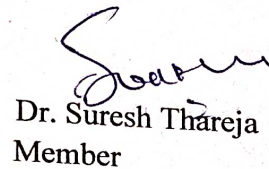 Dr. Suresh Thareja
Member